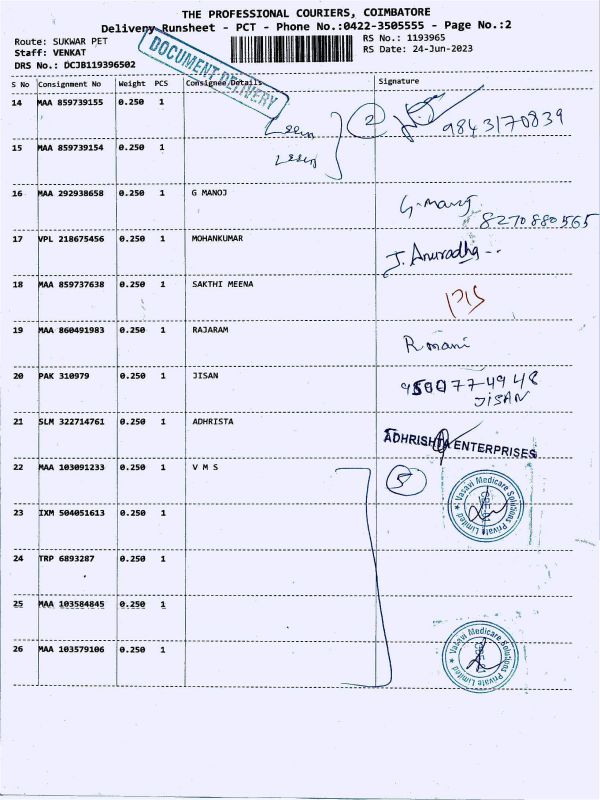 THE PROFESSIONAL COURIERS, COIMBATORE
Delivery Runsheet - PCT - Phone No.:0422-3505555 - Page No.:2
Route: SUKWAR PET
RS No.: 1193965
Staff: VENKAT
RS Date: 24-Jun-2023
DRS No.: DCJB119396502
DOCUMENT DELIVERY
S No Consignment No Weight PCS Consignee/Details Signature
14 MAA 859739155 0.250 1
2 9843170839
15 MAA 859739154 0.250 1
16 MAA 292938658 0.250 1 G MANOJ
G. Manoj
8270880565
17 VPL 218675456 0.250 1 MOHANKUMAR
J. Anuradha
18 MAA 859737638 0.250 1 SAKTHI MEENA
19 MAA 860491983 0.250 1 RAJARAM
R mani
20 PAK 310979 0.250 1 JISAN
JISAN
21 SLM 322714761 0.250 1 ADHRISTA
ADHRISHTA ENTERPRISES
22 MAA 103091233 0.250 1 V M S
5
Vasavi Medicare Solutions Private Limited
23 IXM 504051613 0.250 1
24 TRP 6893287 0.250 1
25 MAA 103584845 0.250 1
26 MAA 103579106 0.250 1
Vasavi Medicare Solutions Private Limited